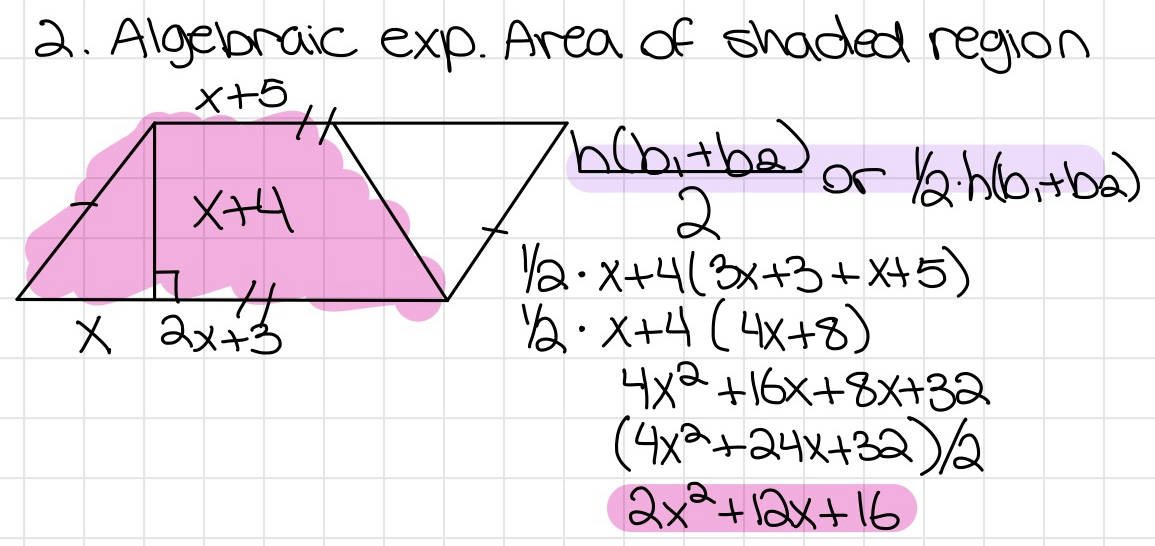 2. Algebraic exp. Area of shaded region
x+5
x+4
x 2x+3
h(b₁+b2)/2 or 1/2·h(b₁+b2)
1/2 · x+4(3x+3+x+5)
1/2 · x+4 (4x+8)
4x²+16x+8x+32
(4x²+24x+32)/2
2x²+12x+16